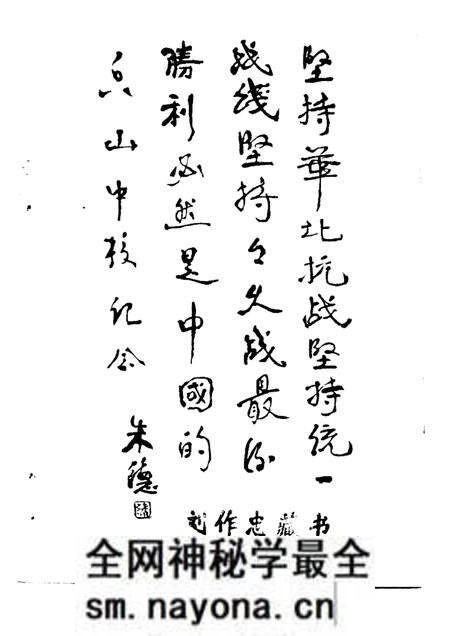 堅持華北抗战堅持統一
战綫堅持々久战最后
勝利必然是中國的
山中校纪念
朱德
刘作忠藏书
全网神秘学最全
sm.nayona.cn